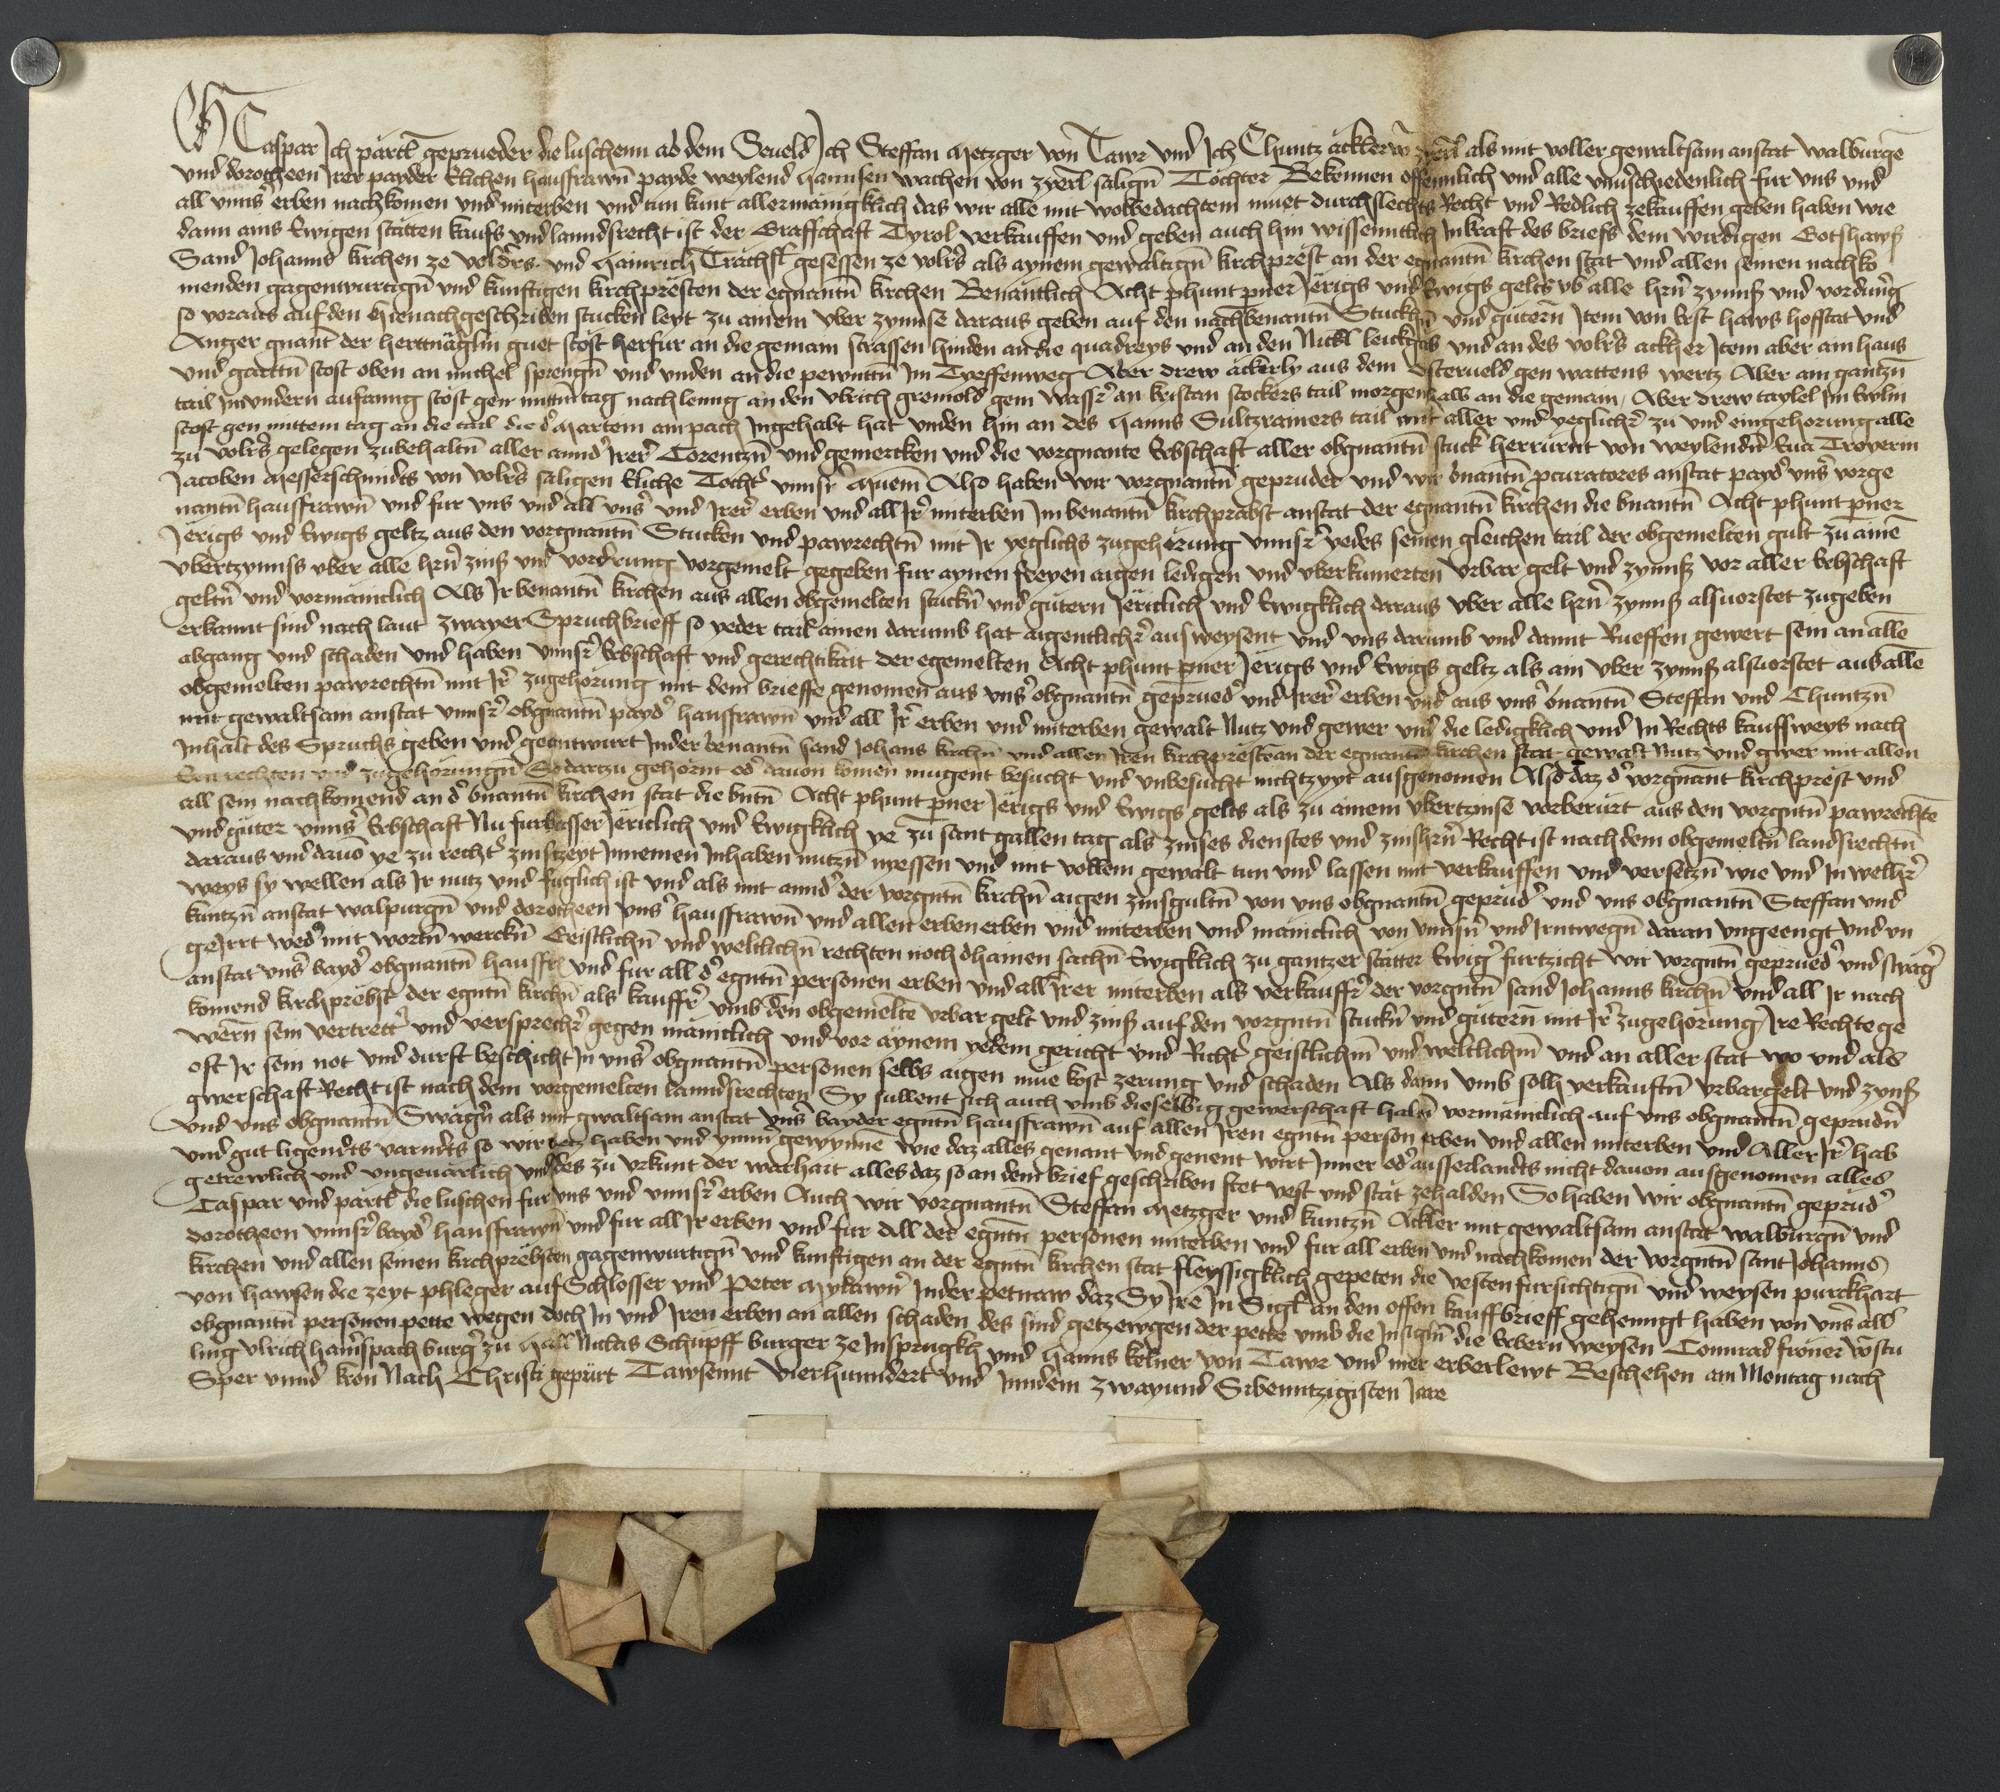 Ich Caspar Ich pärtl geprueder die luschenn ab dem Seueld Ich Steffan Metzger von Tawr und Ich Chuntz äckler von zyerl als mit voller gewaltsam anstat walburgē
und dorotheen Irer payder Elichen hausfrawn payde weylend Hannsen wachen von zyerl salign Tochter Bekennen offennlich und alle unuerschiedenlich fur uns und
all unnsr erben nachkomen und miterben und tun kunt allermänigklich das wir alle mit wolbedachtem muet durchslechts Recht und Redlich zekauffen geben haben wie
dann ains Ewigen stätten kaufs und lanndsrecht ist der Graffschaft Tyrol verkauffen und geben auch hin wissenntlich Inkraft des briefs dem wirdigen Gotshawß
Sand Johanns kirchen ze volders und Hainrich Trächsl gesessen ze volrs als aynem gewaltign kirchprest an der egnantn kirchen stat und allen seinen nachko
menden gagenwurtign und kunftigen kirchpresten der egnantn kirchen Benäntlich Acht phunt pner Jerigs und Ewigs gelts ub alle hrn zynnß und vordung
so voraus auf den hienachgeschriben stucken leyt zu ainem uber zynnse daraus geben auf den nachbenantn Stuckn und gütern Item von erst haws hofstat und
Anger gnant der herttnäglin guet stöst herfur an die gemain strassen hinden an die quadreys und an den Nickl und an des volrs ackher Item aber ain haus
und garttn stost oben an michel sprengn und unden an die pewnttn Im Tyeffenweg Aber drew äckerly aus dem Osterueld gen wattens wertz Aber am gantzn
tail Inundern aufanng stöst gen mittntag nach lenng an den Ulrich gremold gem wassr an kristan stockers tail morgenhalb an die gemain Aber drew taylel Im
stost gen mittem tag an die tail die dr Martein am pach Ingehabt hat unden hin an des Hanns Sultzrainers tail mit aller und yeglichr zu und eingehorung alle
zu volrs gelegen zubehaltn aller annd Irer Torentzn und gemercken und die vorgnante Erbschaft aller obgnantn stuck herrürnt von weylendn Eua Troyerin
Jacoben Messerschmidts von volrs saligen Eliche Tochtr unnsr Muem Also haben wir vorgnantn geprudr und wir bnantn pcuratores anstat payd unsr vorge
nantn hausfrawn und fur uns und all unsr und Irer erben und all Ir miterben Im benantn kirchprabst anstat der egnantn kirchen die bnantn Acht phunt pner
Jerigs und Ewigs geltz aus den vorgnantn Stucken und pawrechtn mit Ir yeglichs zugehörung unnsr yedes seinen gleichen tail der obgemelten gult zu ainē
ubertzynnss uber alle hrn zinß und vordrung vorgemelt gegeben fur aynen freyen aigen ledigen und unbekumerten urbar gelt und zynnß vor aller Erbschaft
geltn und vormäniclich Als Ir benantn kirchen aus allen obgemelten stuckn und gutern Järiclich und Ewigklich daraus uber alle hrn zynnß alsuorstet zugeben
erkannt sind nach laut zwayer Spruchbrieff so yeder tail ainen darumb hat aigentlichr ausweysent und uns darumb und damit Rueffen gewert sein an allē
abgang und schaden und haben unnsr Erbschaft und gerechtikait der egemelten Acht phunt pner Jerigs und Ewigs geltz als ain uber zynnß alsuorstet aus allē
obgemelten pawrechtn mit Ir zugehorung mit dem brieffe genomen aus uns obgnantn geprued und Irer erben und aus uns bnantn Steffan und Chuntzn
mit gewaltsam anstat unnsr obgnantn payd hausfrawn und all Ir erben und miterben gewalt Nutz und gewer und die ledigklich und In Rechts kauffweys nach
Inhalt des Spruchs geben und geantwurt Inder benantn sand Johans kirchn und allen Iren kirchpresten an der egnantn kirchen stat gewalt Nutz und gwer mit allen
Ern rechten und zugehorungn So dartzu gehornt od dauon komen mugent besucht und unbesucht nichtzyyt ausgenomen Also daz d vorgnant kirchprest und
all sein nachkomend an d bnantn kirchen stat die bntn Acht phunt pner Jerigs und Ewigs gelts als zu ainem ubertzinse vorberurt aus den vorgntn pawrechtē
und guter unns Erbschaft Nu furbasser Järiclich und Ewigklich ye zu sant gallen tag als zinses dienstes und zinshrn Recht ist nach dem obgemeltn landsrechtn
daraus und dauō ye zu recht zinstzeyt Innemen Inhaben nutzn nyessen und mit vollem gewalt tun und lassen mit verkauffen und versetzn wie und In welhr
weys sy wellen als Ir nutz und fuglich ist und als mit annd der vorgntn kirchn aigen zinsgultn von uns obgnantn geprud und uns obgnantn Steffan und
kuntzn anstat walpurgn und dorotheen uns hausfrawn und allen erben erben und miterben und mäniclich von unnsn und Irntwegn daran ungeengt und un
geIrrt wed mit wortn werckn Geistlichn und weltlichn rechten noch dhainen sachn Ewigklich zu gantzer stätter Ewig furtzicht wir vorgntn geprued und swäg
anstat uns bayd obgnantn hausfrn und fur all d egntn personen erben und all Irer miterben als verkauffr der vorgntn sand Johanns kirchn und all Ir nach
komend kirchprebst der egntn kirchn als kauffr umb den obgemelte urbar gelt und zinß auf den vorgntn stuckn und gutern mit Ir zugehorung Ire Rechte ge
wern sein vertrettr und versprechr gegen mäniclich und vor aynem yedem gericht und Richt geistlichm und weltlichm und an aller stat wo und als
oft Ir sein not und durft beschicht In uns obgnantn personen selbs aigen mue kost zerung und schaden Als dann umb solh verkauftn urbargelt und zynß
gwerschaft Recht ist nach dem vorgemelten lanndsrechten Sy sullent sich auch umb dieselbig gewerschaft haltn vormäniclich auf uns obgnantn geprudn
und uns obgnantn Swägn als mit gwaltsam anstat uns bayder egntn hausfrawn auf allen Iren egntn person erben und allen miterben und Aller Ir hab
und gut ligendts varndts so wir yetz haben und ymmr gewynnē wie daz alles genant und genent wirt Inner od ausserlandts nicht dauon ausgenomen alles
getrewlich und ungeuärlich und des zu urkunt der warhait alles daz so an dem brief geschriben stet vest und stät zehalden So haben wir obgnantn geprud
Caspar und pärtl die luschen fur uns und unnsr erben Auch wir vorgnantn Steffan Metzger und kuntzn Äckler mit gewaltsam anstat walburgn und
dorotheen unnsr bayd hausfrawn und fur all Ir erben und fur All der egntn personen miterben und fur all erben und nachkomen der vorgntn sant Johanns
kirchen und allen seinen kirchprebsten gagenwurtign und kunftigen an der egntn kirchen stat fleyssigklich gepeten die vesten fursichtign und weysen purckhart
von hawsen die zeyt phleger auf Schlosser und Peter Inder petnaw daz Sy Ire In Sigl an den offen kauffbrieff gehenngt haben von uns all
obgnantn personen pette wegen doch In und Iren erben an allen schaden des sind getzewgen der pette umb die Insigln die Erbern weysen Connrad fröner
ling Ulrich hamspach burg zu Hall Niclas Schupff burger ze Insprugkh und Hanns kelner von Tawr und mer erberlewt Beschehen am Montag nach
Sper unnd kron Nach Christi gepürt Tawsennt Vierhunndert und Inndem zwayund Sibenntzigisten Jare